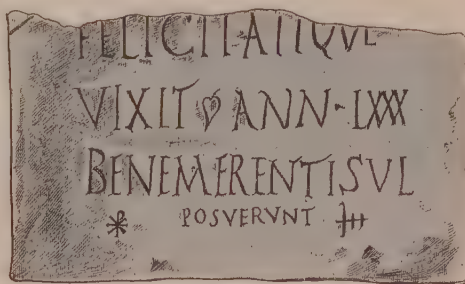 FELICITATIQVE
VIXIT ANN-LXXX
BENEMERENTISVL
POSVERVNT